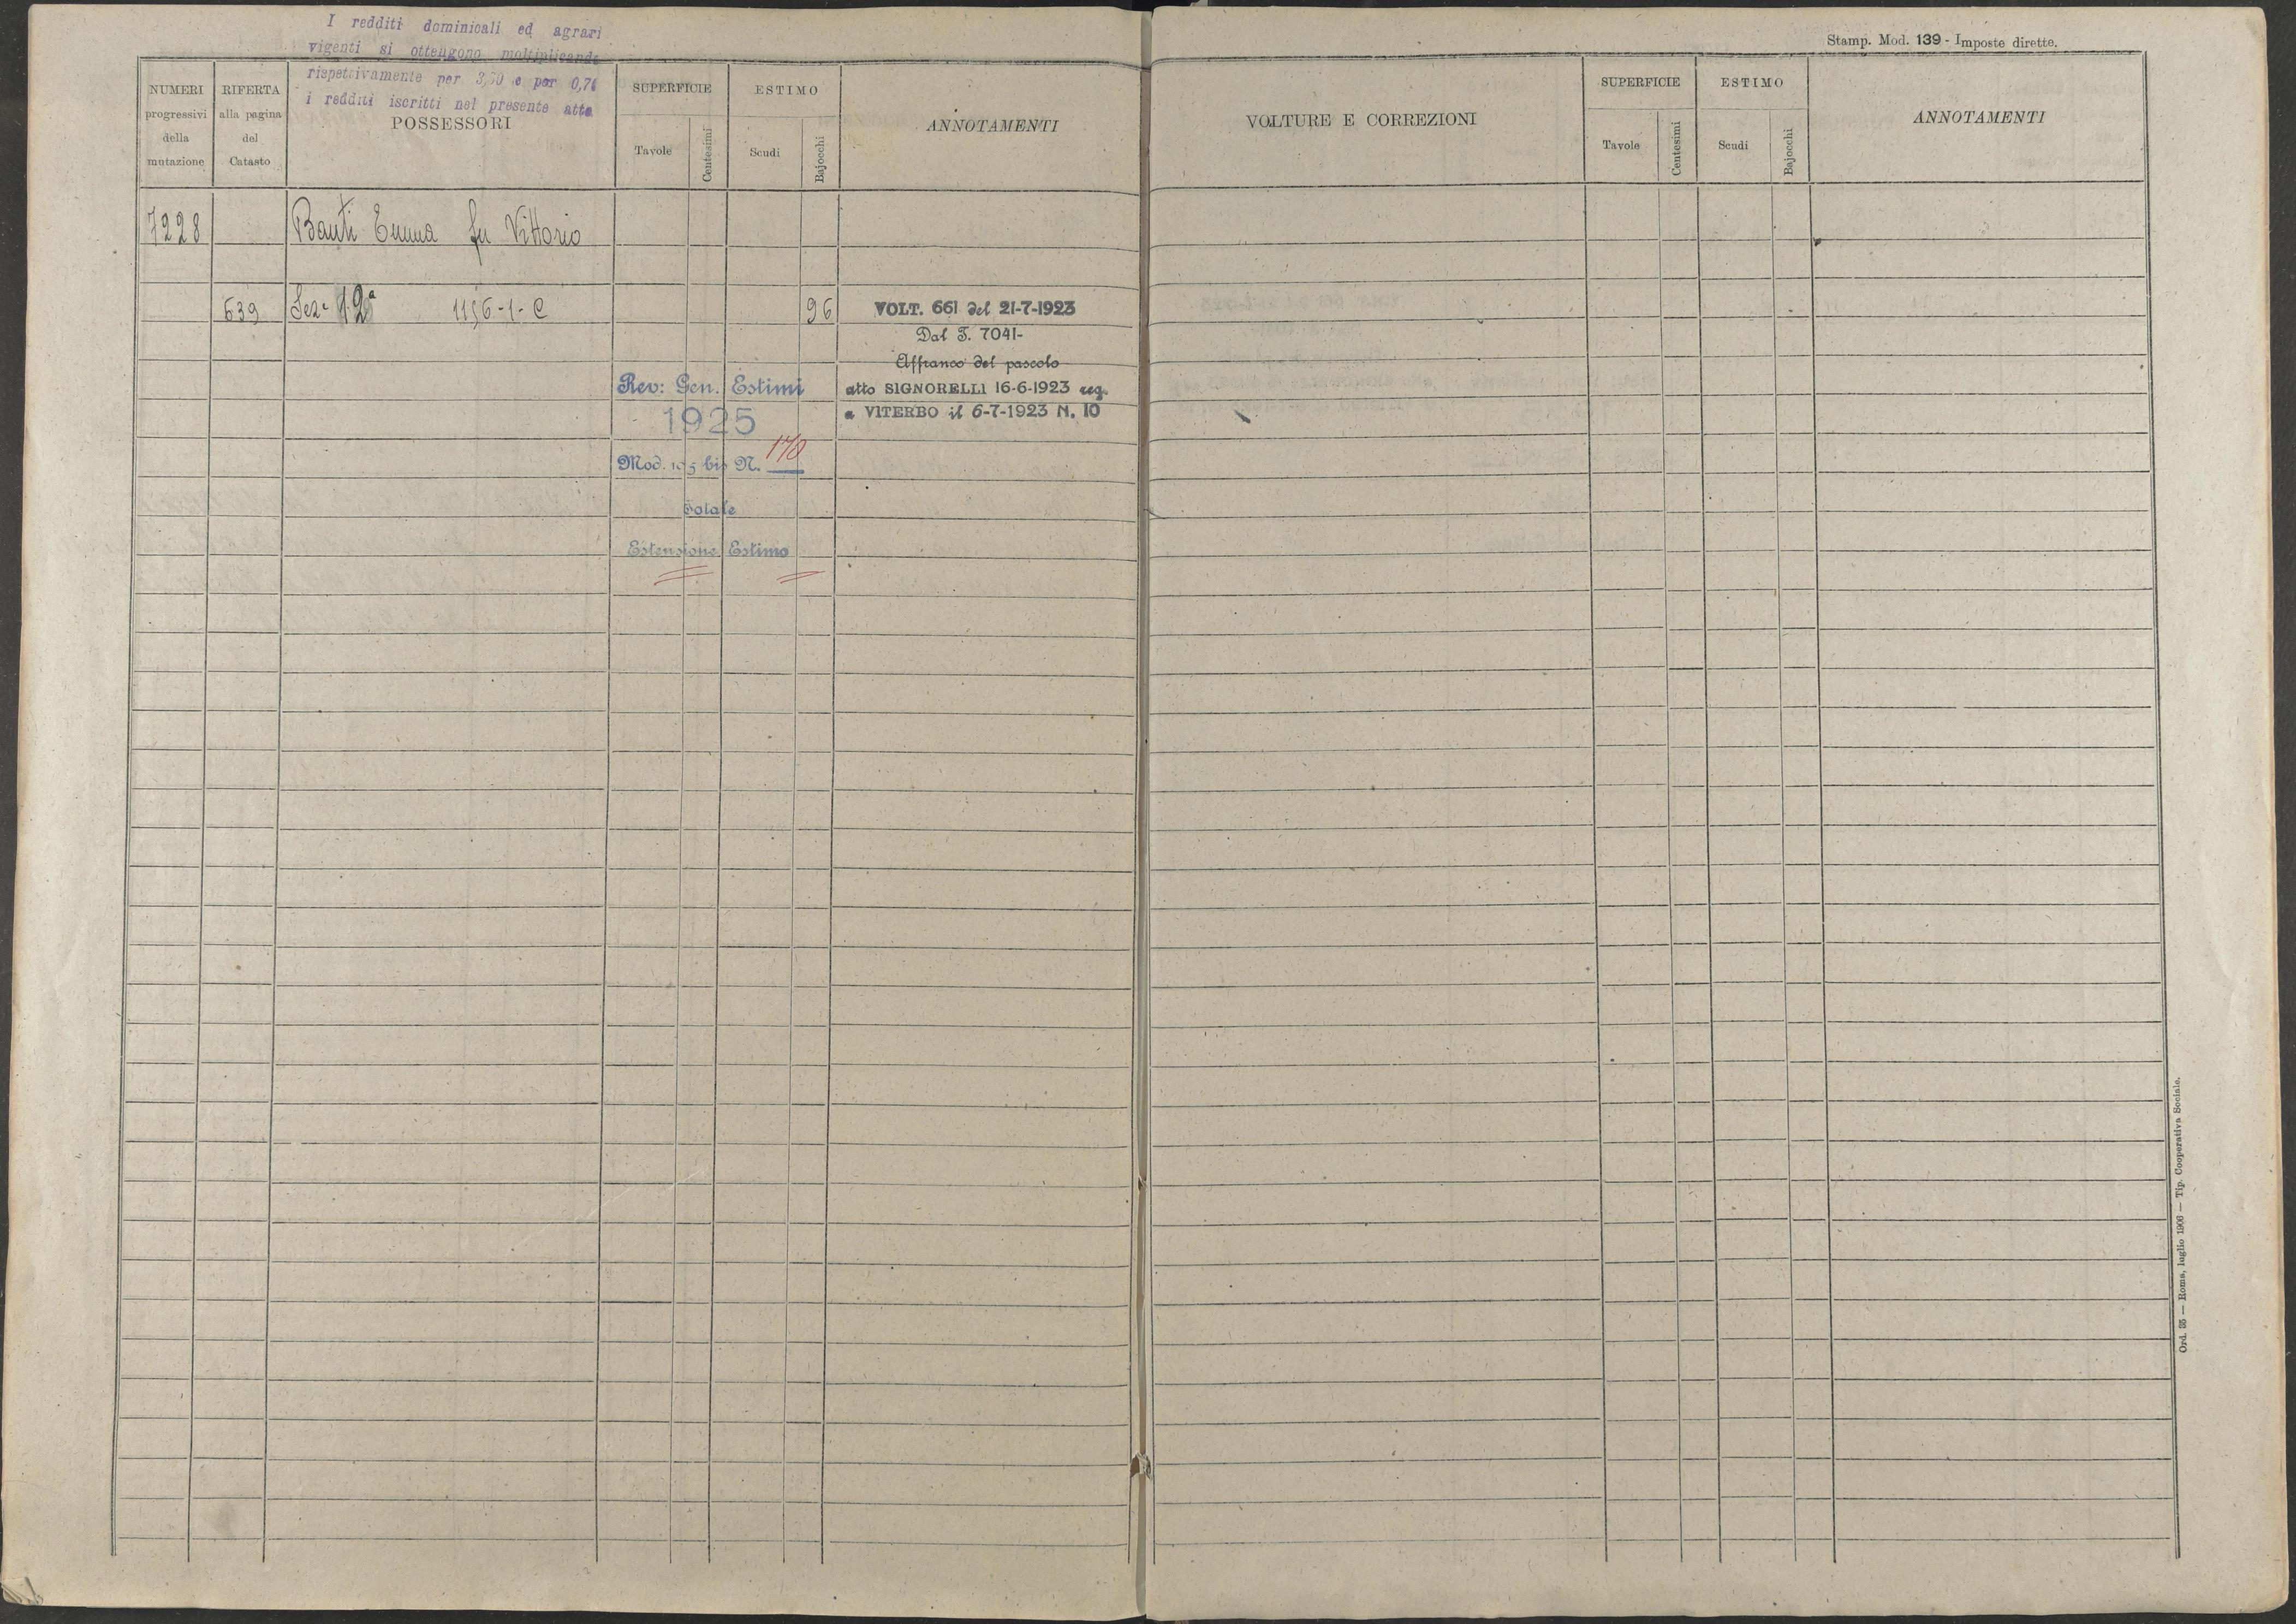 I redditi dominicali ed agrari
vigenti si ottengono moltiplicando
rispettivamente per 3,50 e per 0,70
i redditi iscritti nel presente atto
Stamp. Mod. 139 - Imposte dirette.
NUMERI progressivi della mutazione
RIFERTA alla pagina del Catasto
POSSESSORI
SUPERFICIE
Tavole
Centesimi
ESTIMO
Scudi
Bajocchi
ANNOTAMENTI
7228
Banti Emma fu Vittorio
639 Seze 12ª 1156-1-C 96
VOLT. 661 del 21-7-1923
Dal T. 7041-
Affranco del pascolo
atto SIGNORELLI 16-6-1923 reg.
a VITERBO il 6-7-1923 N. 10
Rev: Gen. Estimi
1925
Mod. 105 bis N. 170
Totale
Estensione Estimo
VOLTURE E CORREZIONI
SUPERFICIE
Tavole
Centesimi
ESTIMO
Scudi
Bajocchi
ANNOTAMENTI
Ord. 35 — Roma, luglio 1906 — Tip. Cooperativa Sociale.